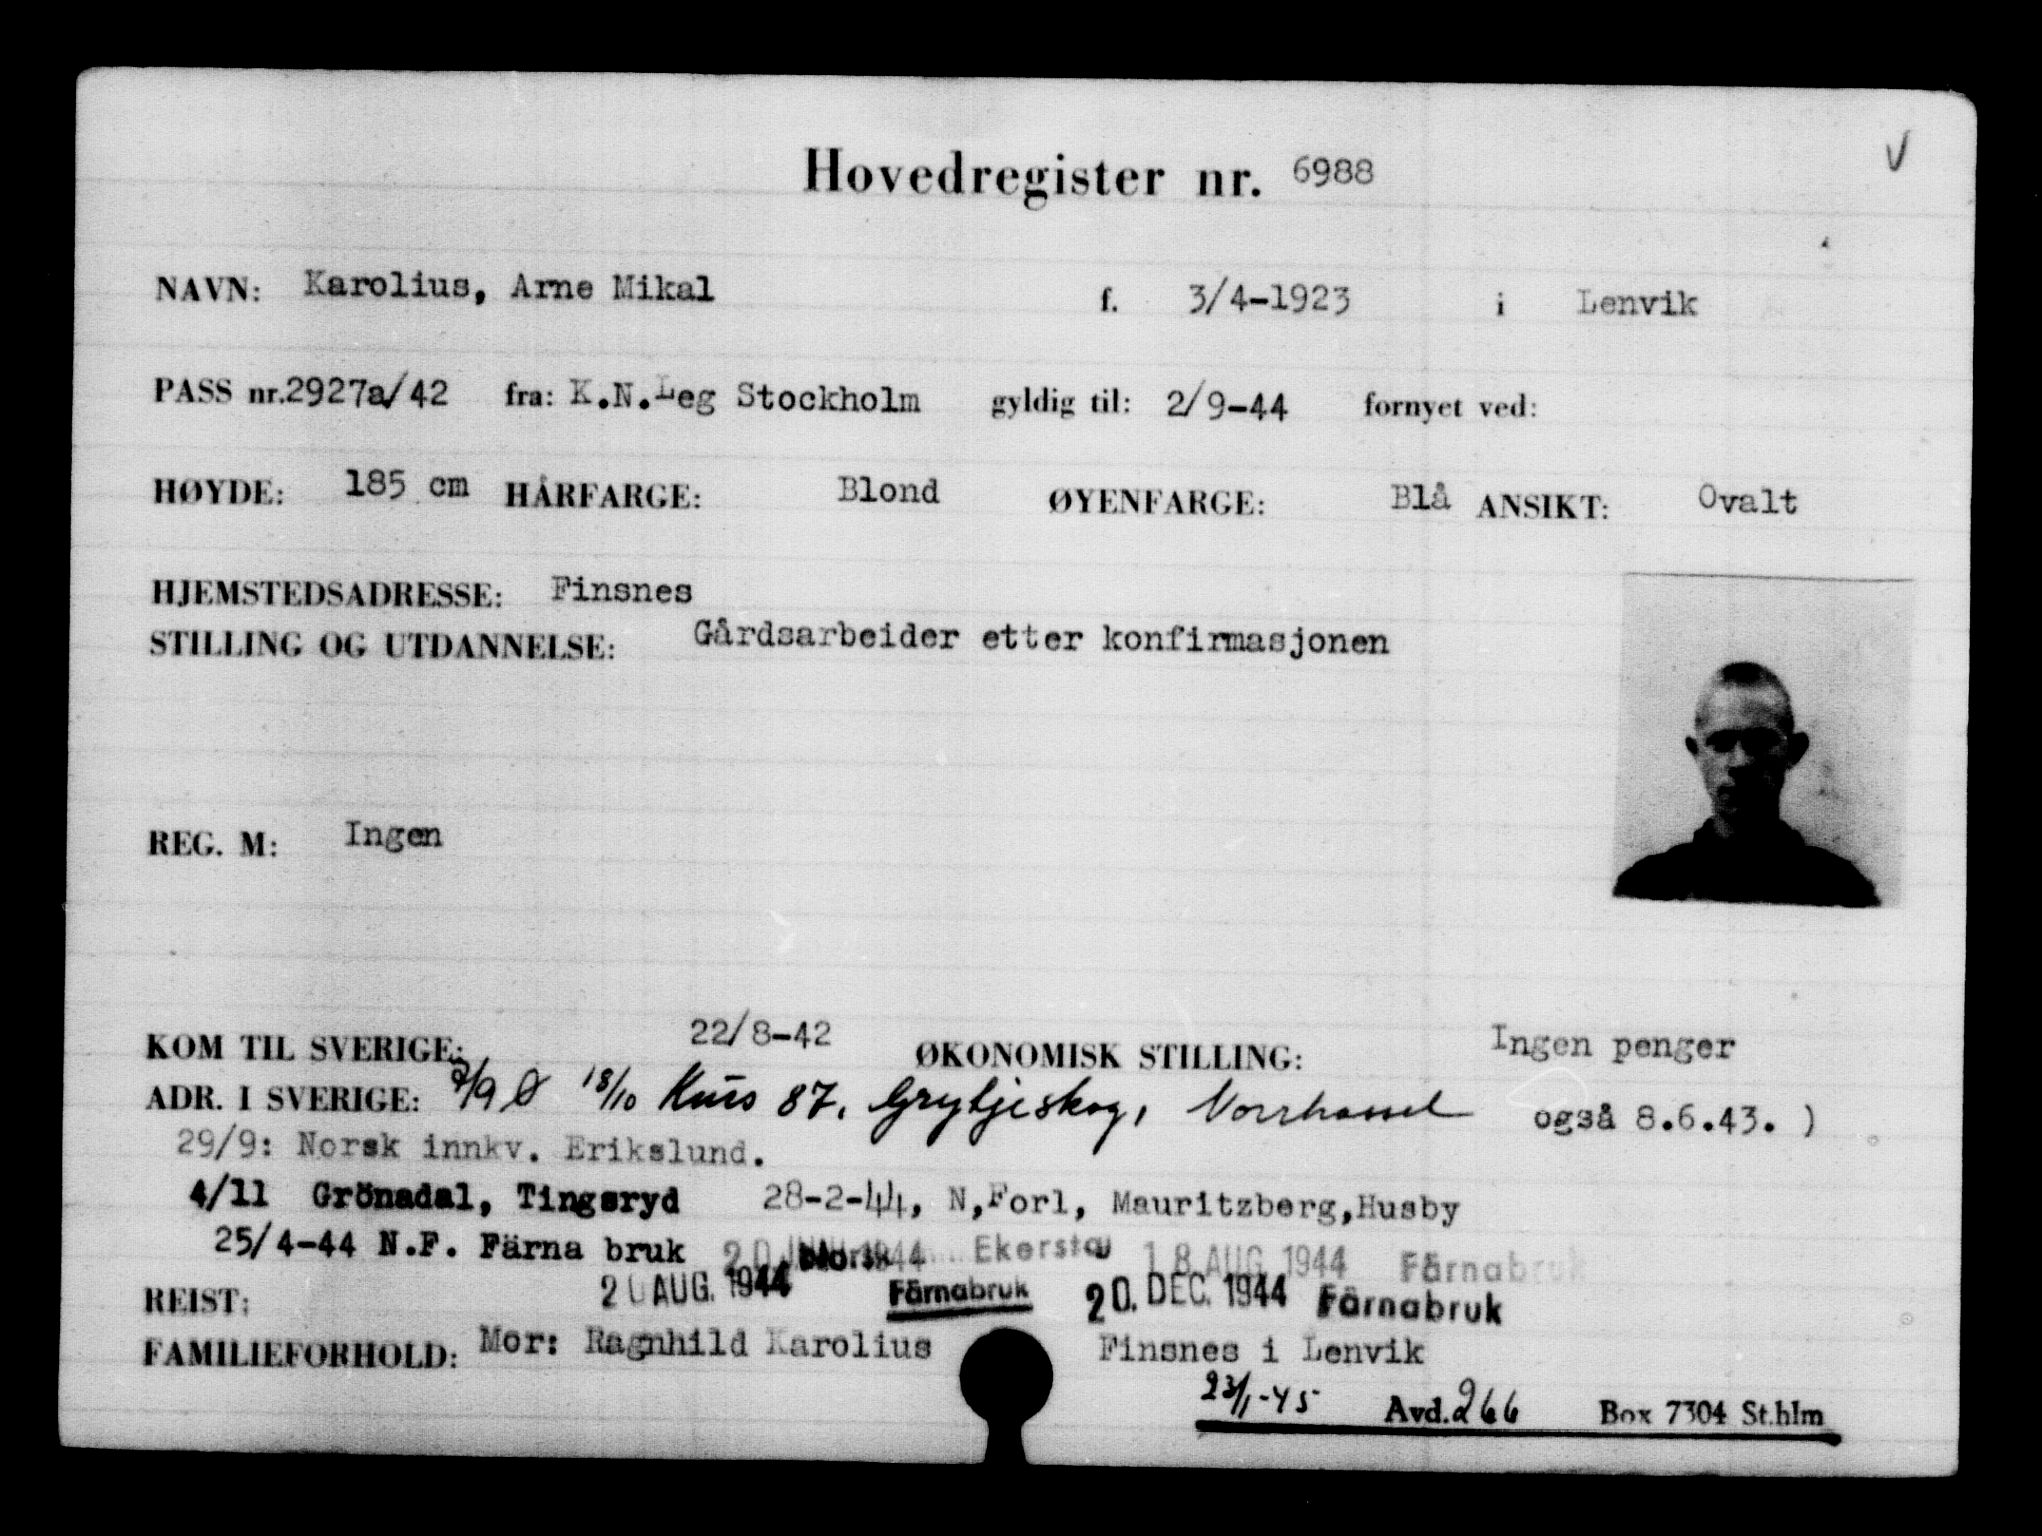 Hovedregister nr. 6988
NAVN: Karolius, Arne Mikal f. 3/4-1923 i Lenvik
PASS nr. 2927a/42 fra: K.N.Leg Stockholm gyldig til: 2/9-44 fornyet ved:
HØYDE: 185 cm HÅRFARGE: Blond ØYENFARGE: Blå ANSIKT: Ovalt
HJEMSTEDSADRESSE: Finsnes
STILLING OG UTDANNELSE: Gårdsarbeider etter konfirmasjonen
REG. M: Ingen
KOM TIL SVERIGE: 22/8-42 ØKONOMISK STILLING: Ingen penger
ADR. I SVERIGE: 2/9 Ø 18/10 Kurs 87, Grytjeskog, Norrhassel også 8.6.43. )
29/9: Norsk innkv. Erikslund.
4/11 Grönadal, Tingsryd 28-2-44, N,Forl, Mauritzberg,Husby
25/4-44 N.F. Färna bruk 20 JUNI 1944 Norsk Ekersta 18 AUG 1944 Färnabruk
REIST: 20 AUG. 1944 Färnabruk 20. DEC. 1944 Färnabruk
FAMILIEFORHOLD: Mor: Ragnhild Karolius Finsnes i Lenvik
23/1-45 Avd. 266 Box 7304 St.hlm